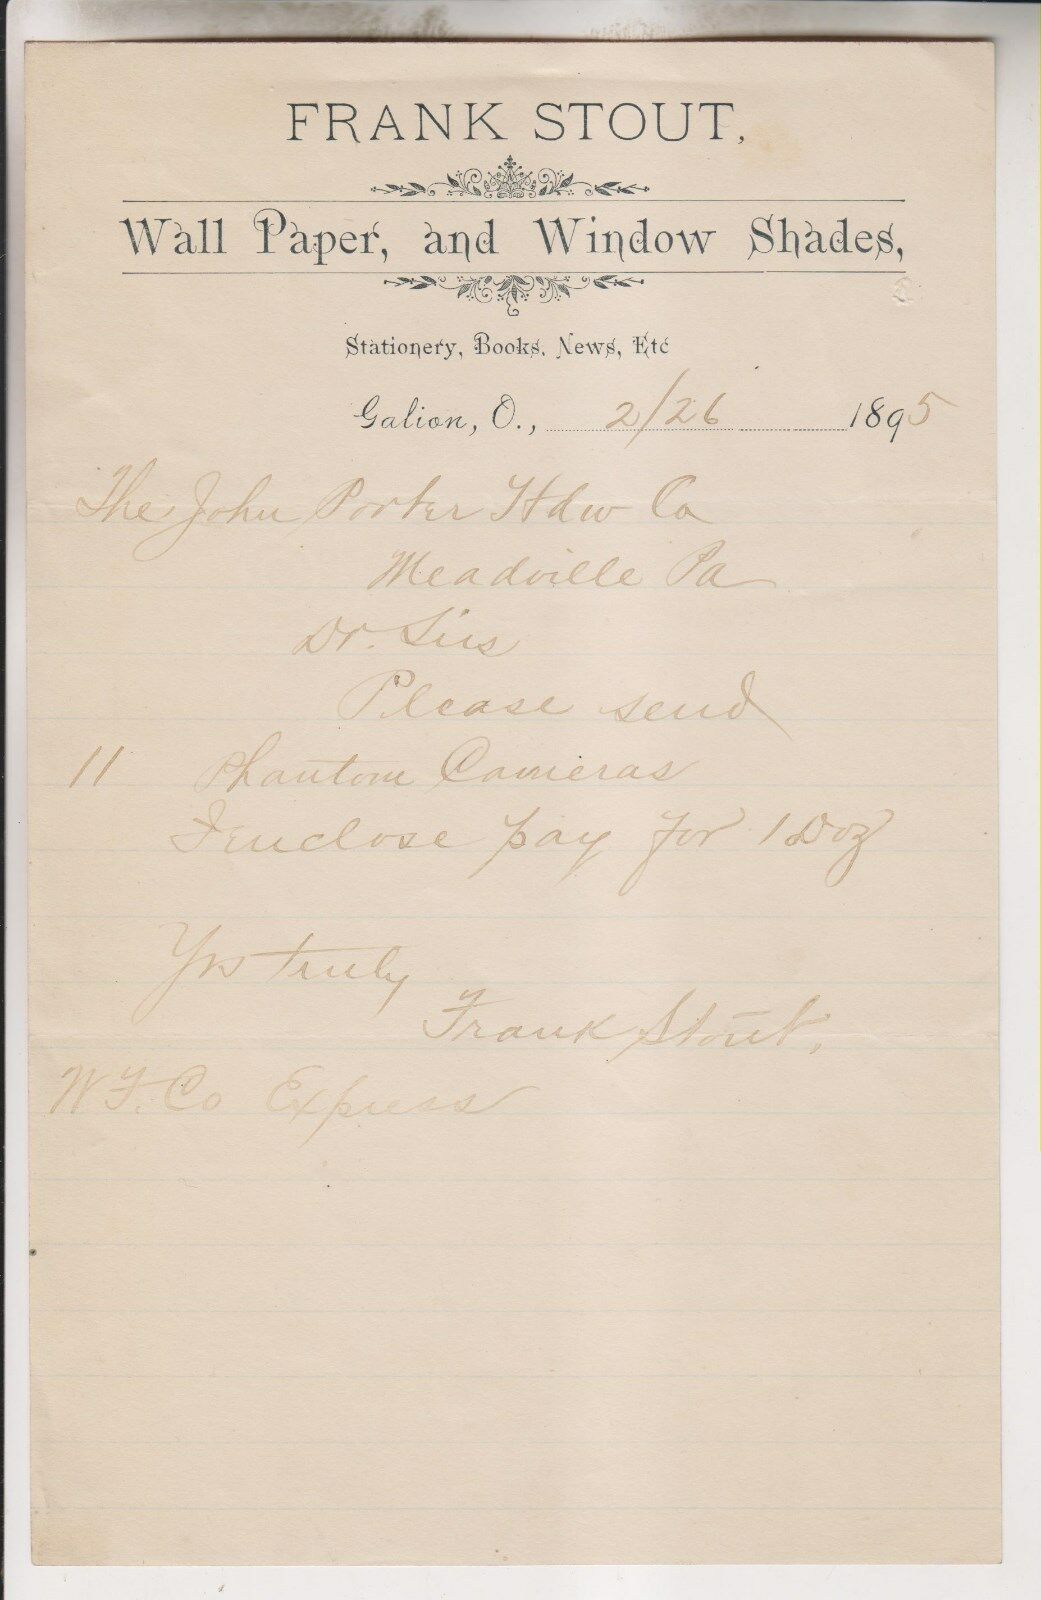 FRANK STOUT,
Wall Paper, and Window Shades,
Stationery, Books, News, Etc
Galion, O., 2/26 1895
The John Porter Hdw Co
Meadville Pa
Dr. Sirs
Please send
11 Phantom Cameras
I enclose pay for 1 Doz
Yrs truly
Frank Stout,
W F. Co Express